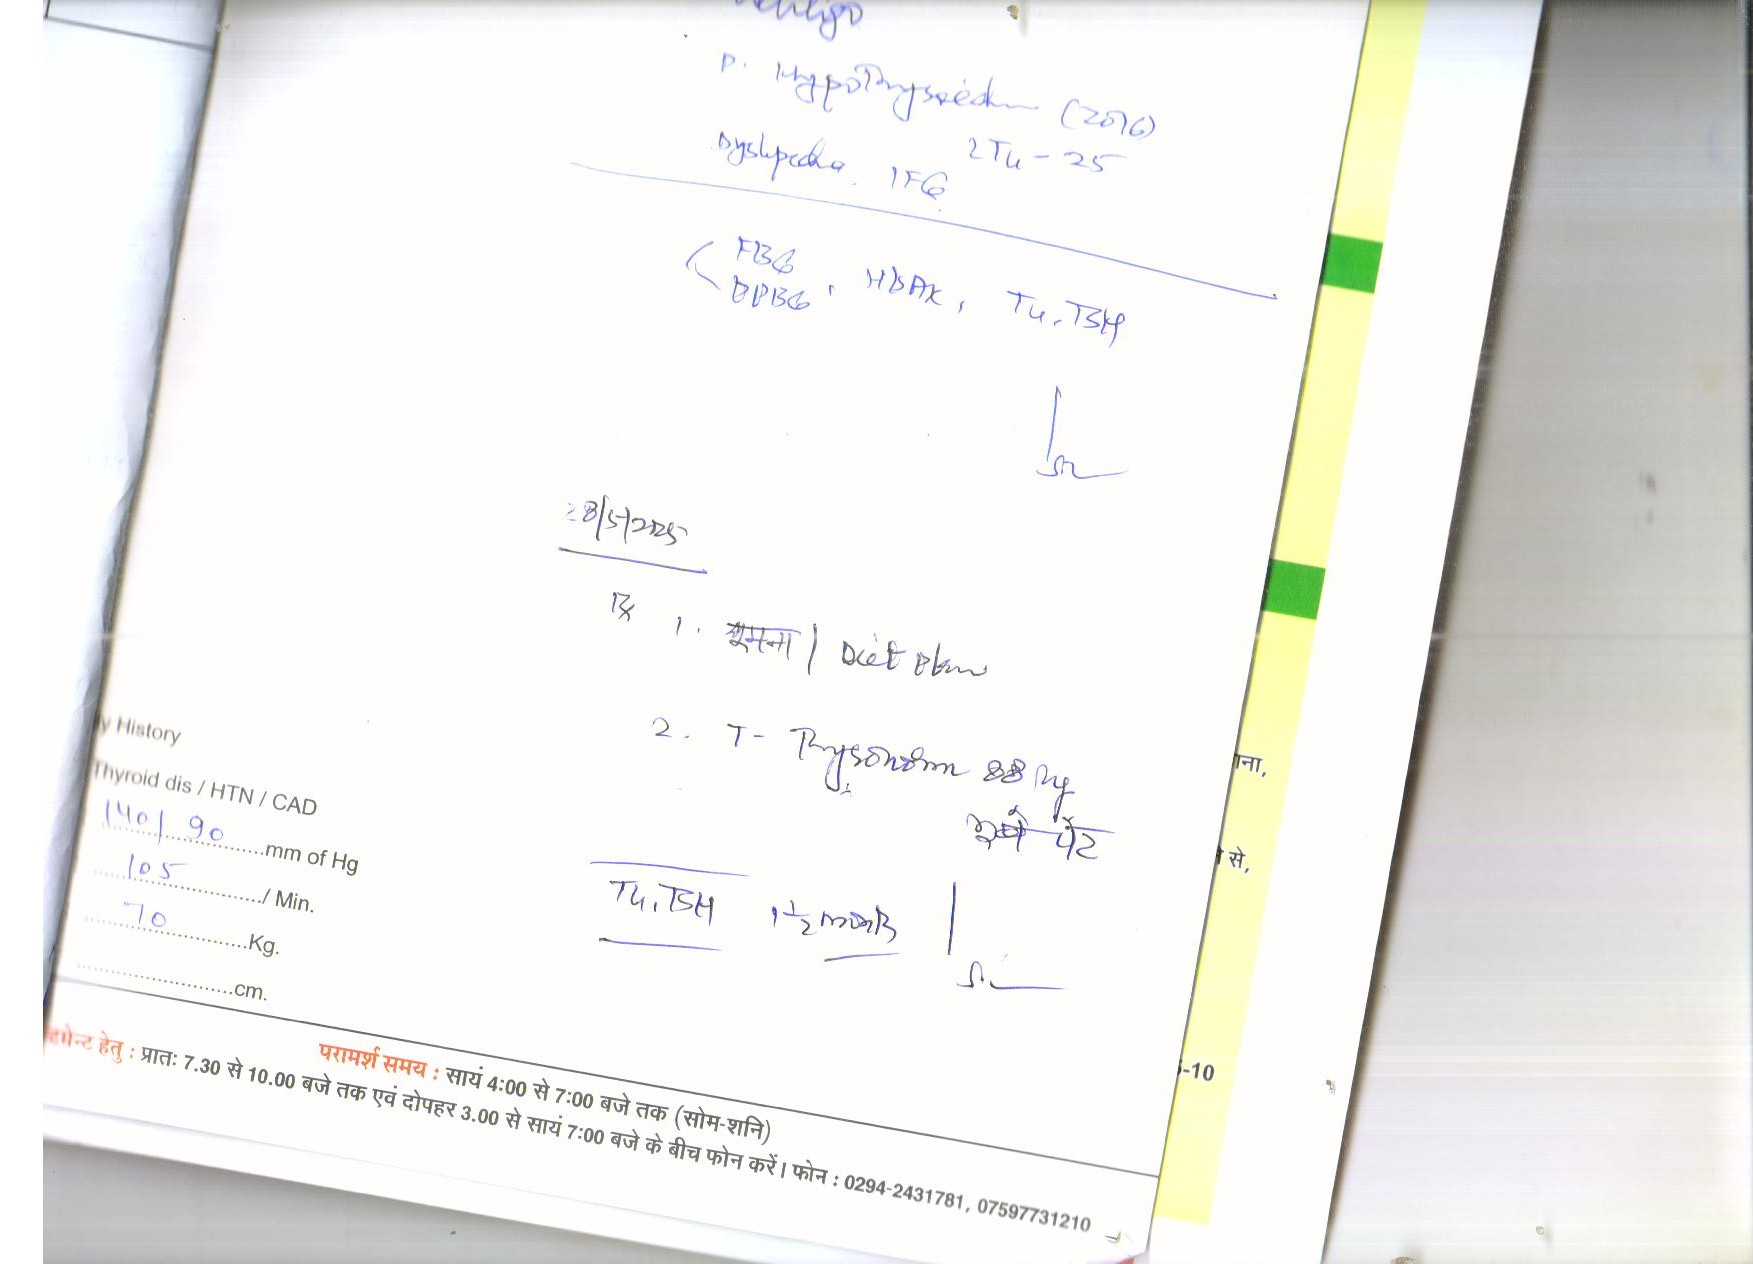 Vertigo
P. Hypothyroidism (2016)
LT4 - 25
Dyslipedemia. IFG
FBG
PPBG, HbA1c, T4, TSH
28/5/2025
Rx 1. घूमना / Diet Plan
2. T- Thyronorm 88 μg
भूखे पेट
T4, TSH 1 1/2 month
y History
Thyroid dis / HTN / CAD
140/90 mm of Hg
105 / Min.
70 Kg.
cm.
परामर्श समय : सायं 4:00 से 7:00 बजे तक (सोम-शनि)
हेतु : प्रातः 7.30 से 10.00 बजे तक एवं दोपहर 3.00 से सायं 7:00 बजे के बीच फोन करें। फोन : 0294-2431781, 07597731210
ना,
से,
-10